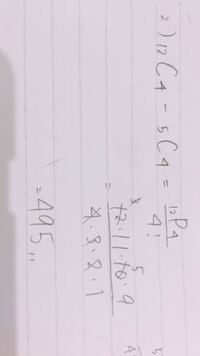 2) ₁₂C₄ - ₅C₄ = ₁₂P₄ / 4!
= 12・11・10・9 / 4・3・2・1
= 495,,,